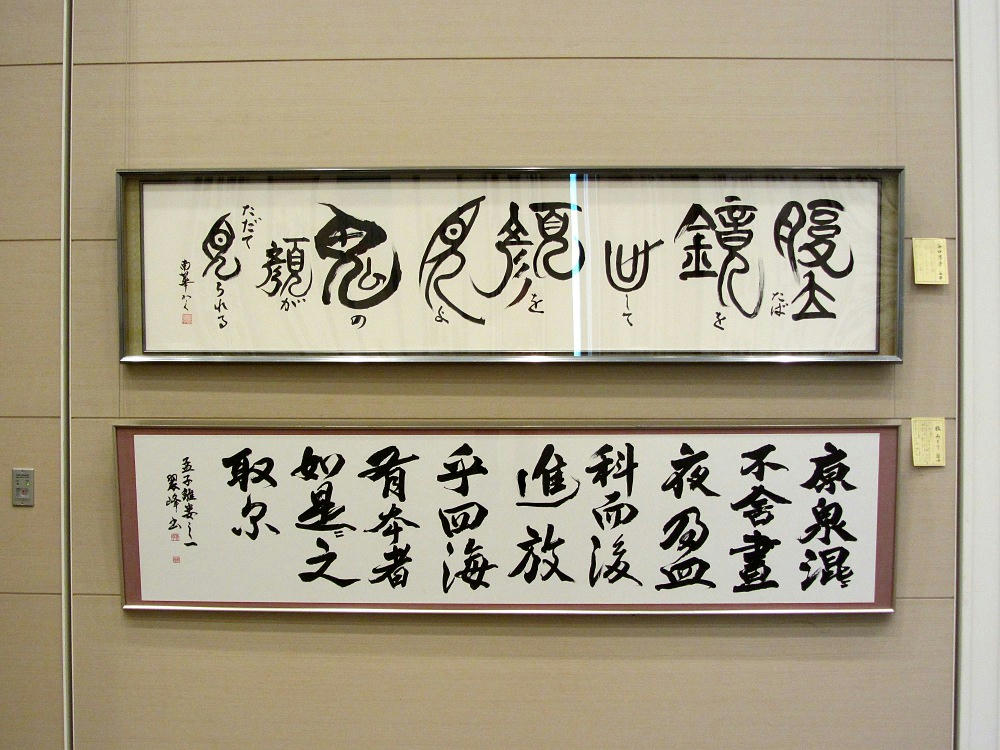 腹立たば
鏡を
出して
顔を
見よ
鬼の
顔が
ただで
見られる
南華
原泉混〻
不舍晝
夜盈
科而後
進放
乎四海
有本者
如是〻之
取尓
孟子離婁之一
翠峰書